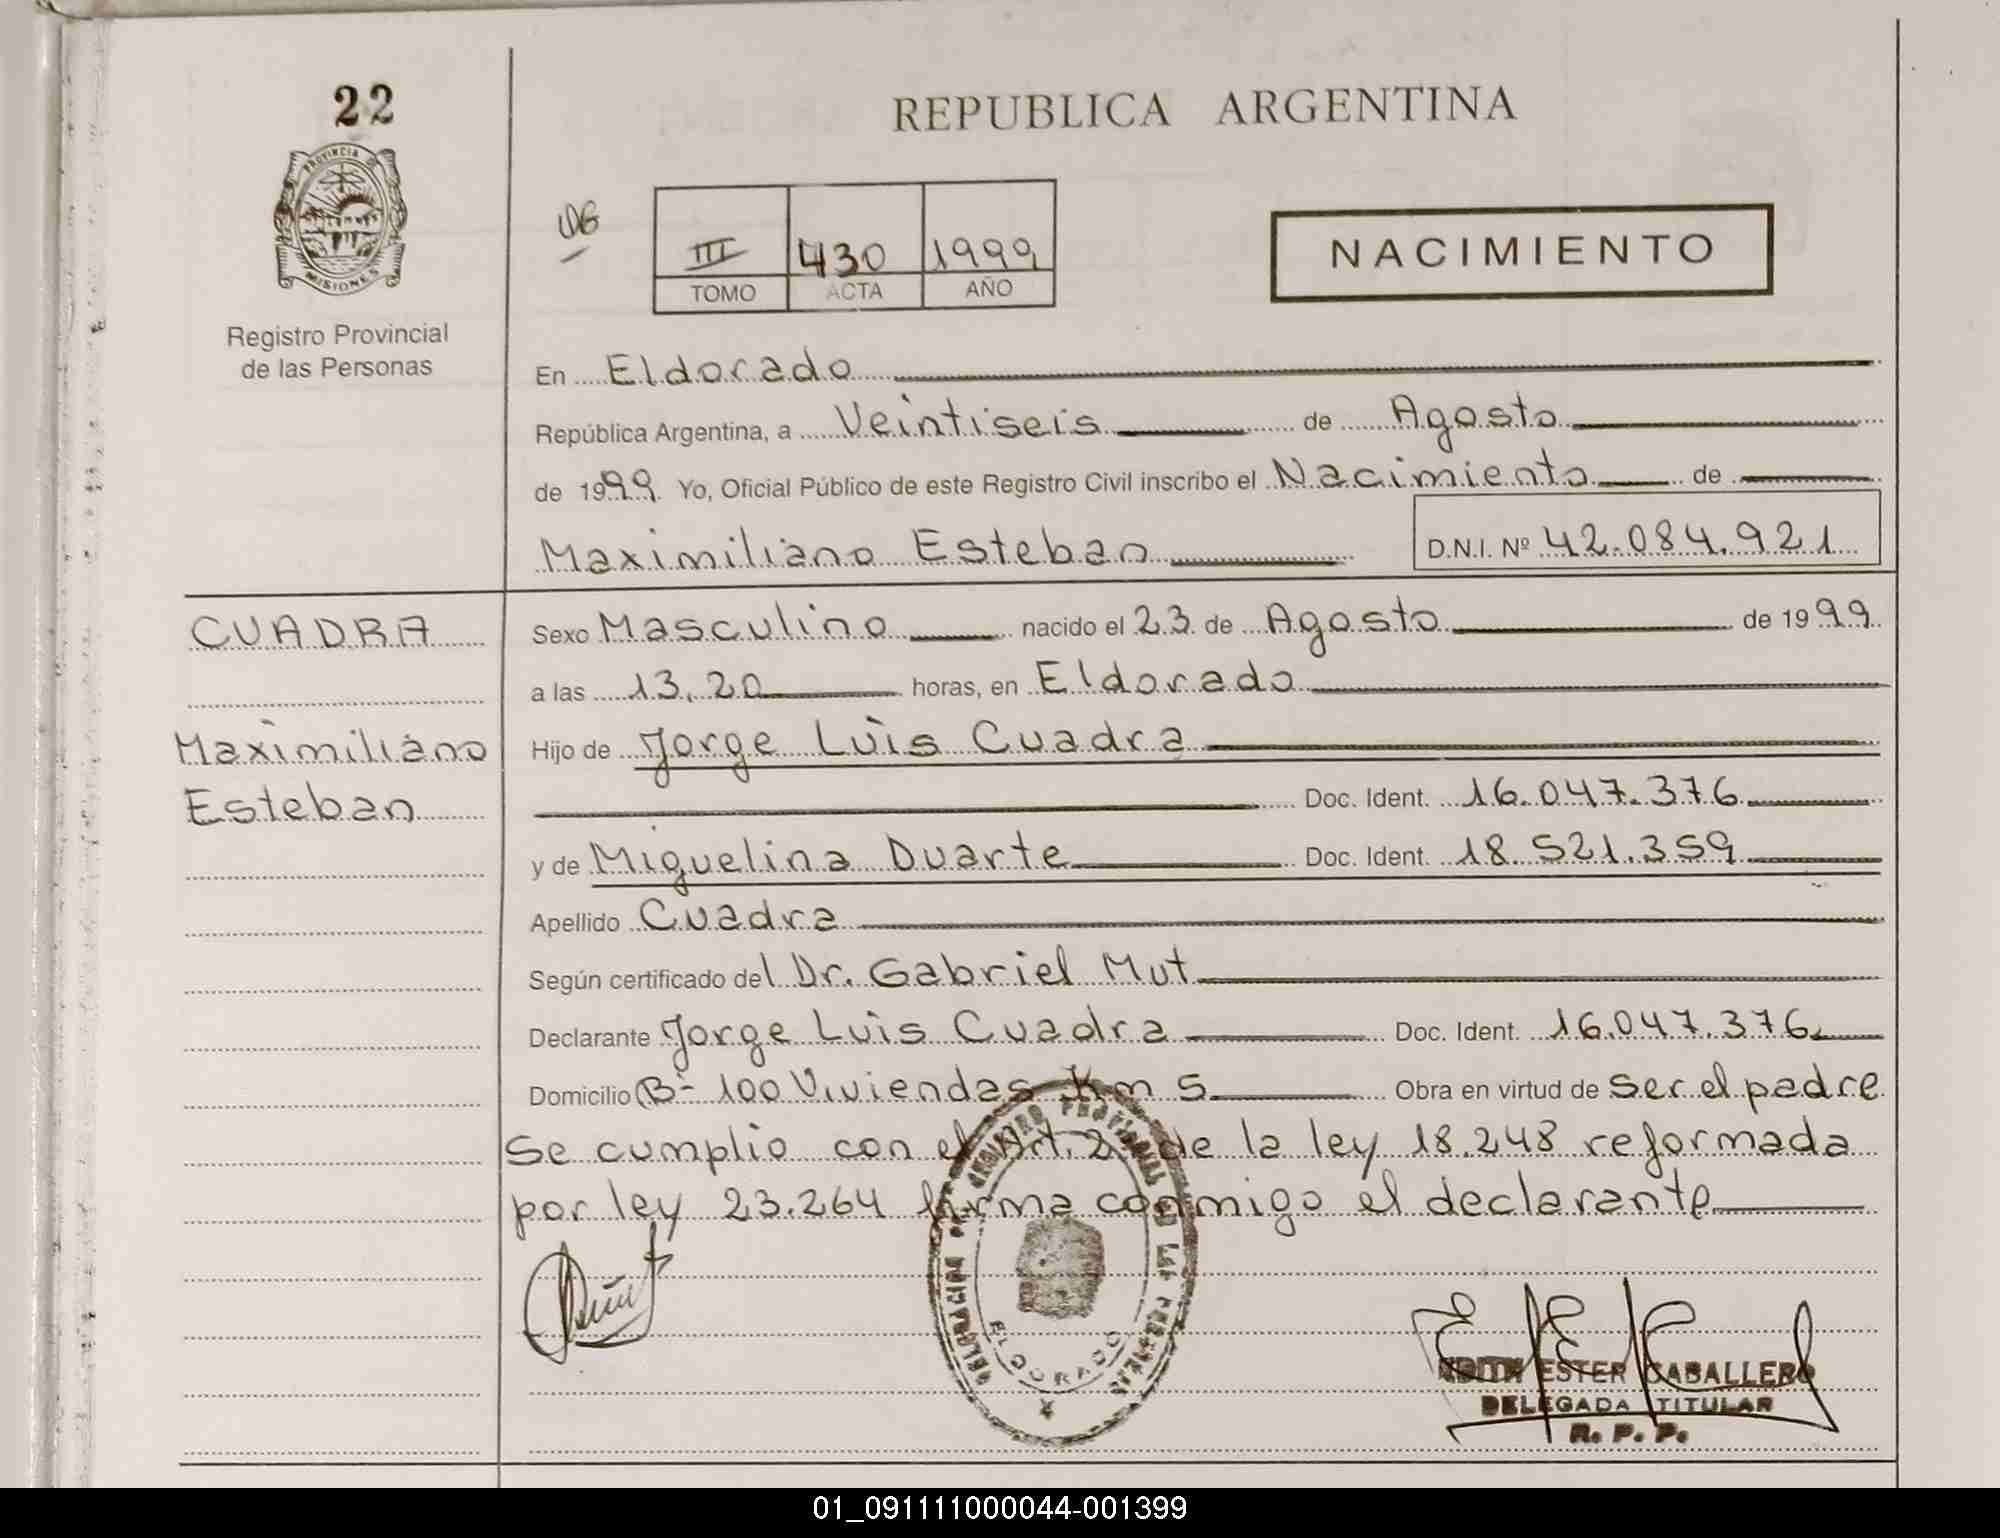 22
REPUBLICA ARGENTINA
PROVINCIA
MISIONES
Registro Provincial
de las Personas
III 430 1999
TOMO ACTA AÑO
NACIMIENTO
En Eldorado
República Argentina, a Veintiseis de Agosto
de 1999. Yo, Oficial Público de este Registro Civil inscribo el Nacimiento de
Maximiliano Esteban D.N.I. Nº 42.084.921
CUADRA
Maximiliano
Esteban
Sexo Masculino nacido el 23 de Agosto de 1999.
a las 13,20 horas, en Eldorado
Hijo de Jorge Luis Cuadra
Doc. Ident. 16.047.376
y de Miguelina Duarte Doc. Ident. 18.521.359
Apellido Cuadra
Según certificado del Dr. Gabriel Mut
Declarante Jorge Luis Cuadra Doc. Ident. 16.047.376
Domicilio Bº 100 Viviendas Km 5 Obra en virtud de ser el padre
Se cumplio con el Art. 2º de la ley 18.248 reformada
por ley 23.264 firma conmigo el declarante
DELEGACION DEL REGISTRO PROVINCIAL DE LAS PERSONAS
ELDORADO
EDITH ESTER CABALLERO
DELEGADA TITULAR
R. P. P.
01_091111000044-001399